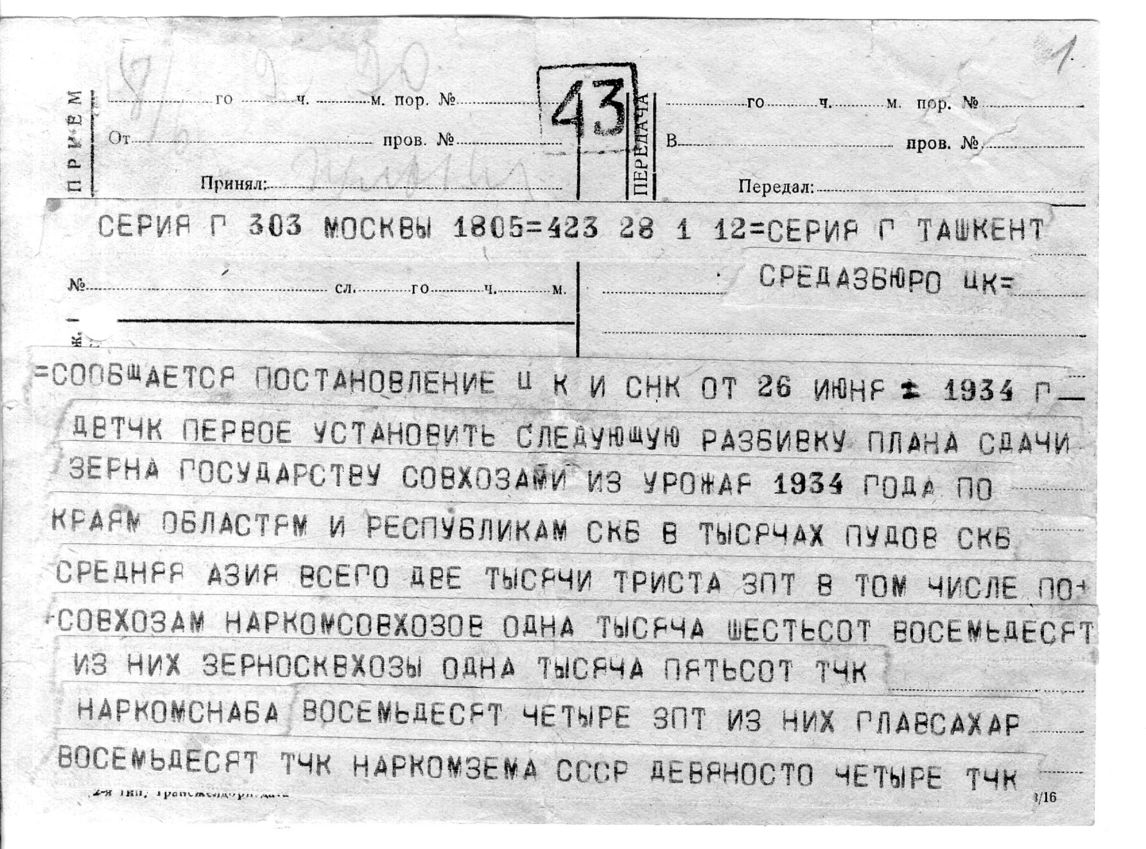 1.
43
ПРИЕМ
го ч. м. пор. №
От пров. №
Принял:
ПЕРЕДАЧА
го ч. м. пор. №
В пров. №
Передал:
СЕРИЯ Г 303 МОСКВЫ 1805=423 28 1 12=СЕРИЯ Г ТАШКЕНТ
СРЕДАЗБЮРО ЦК=
№ сл. го ч. м.
=СООБЩАЕТСЯ ПОСТАНОВЛЕНИЕ Ц К И СНК ОТ 26 ИЮНЯ 1934 Г—
ДВТЧК ПЕРВОЕ УСТАНОВИТЬ СЛЕДУЮЩУЮ РАЗБИВКУ ПЛАНА СДАЧИ
ЗЕРНА ГОСУДАРСТВУ СОВХОЗАМИ ИЗ УРОЖАЯ 1934 ГОДА ПО
КРАЯМ ОБЛАСТЯМ И РЕСПУБЛИКАМ СКБ В ТЫСЯЧАХ ПУДОВ СКБ
СРЕДНЯЯ АЗИЯ ВСЕГО ДВЕ ТЫСЯЧИ ТРИСТА ЗПТ В ТОМ ЧИСЛЕ ПО+
+СОВХОЗАМ НАРКОМСОВХОЗОВ ОДНА ТЫСЯЧА ШЕСТЬСОТ ВОСЕМЬДЕСЯТ
ИЗ НИХ ЗЕРНОСКВХОЗЫ ОДНА ТЫСЯЧА ПЯТЬСОТ ТЧК
НАРКОМСНАБА ВОСЕМЬДЕСЯТ ЧЕТЫРЕ ЗПТ ИЗ НИХ ГЛАВСАХАР
ВОСЕМЬДЕСЯТ ТЧК НАРКОМЗЕМА СССР ДЕВЯНОСТО ЧЕТЫРЕ ТЧК
/16